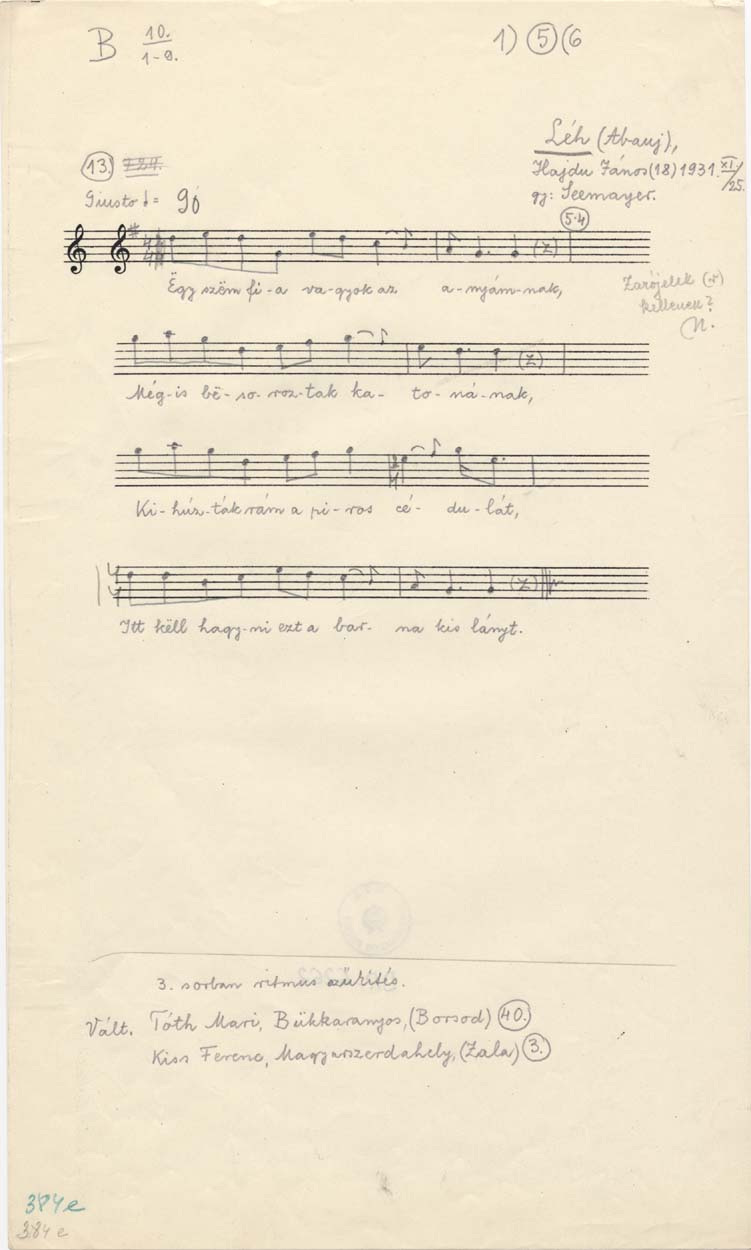 B 10. 1-9.
1) 5 (6
Léh (Abauj),
13.
Hajdu János (18) 1931. XI./25.
Giusto = 96
gy: Seemayer.
5.4
Ëgy szëm fi-a va-gyok az a-nyám-nak,
Zárójelek (z)
kellenek?
Még-is bë-so-roz-tak ka-to-ná-nak,
Ki-húz-ták rám a pi-ros cé-du-lát,
Itt këll hagy-ni ezt a bar-na kis lányt.
3. sorban ritmus szűkítés.
Vált. Tóth Mari, Bükkaranyos, (Borsod) 40.
Kiss Ferenc, Magyarszerdahely, (Zala) 3.
384e
384 e